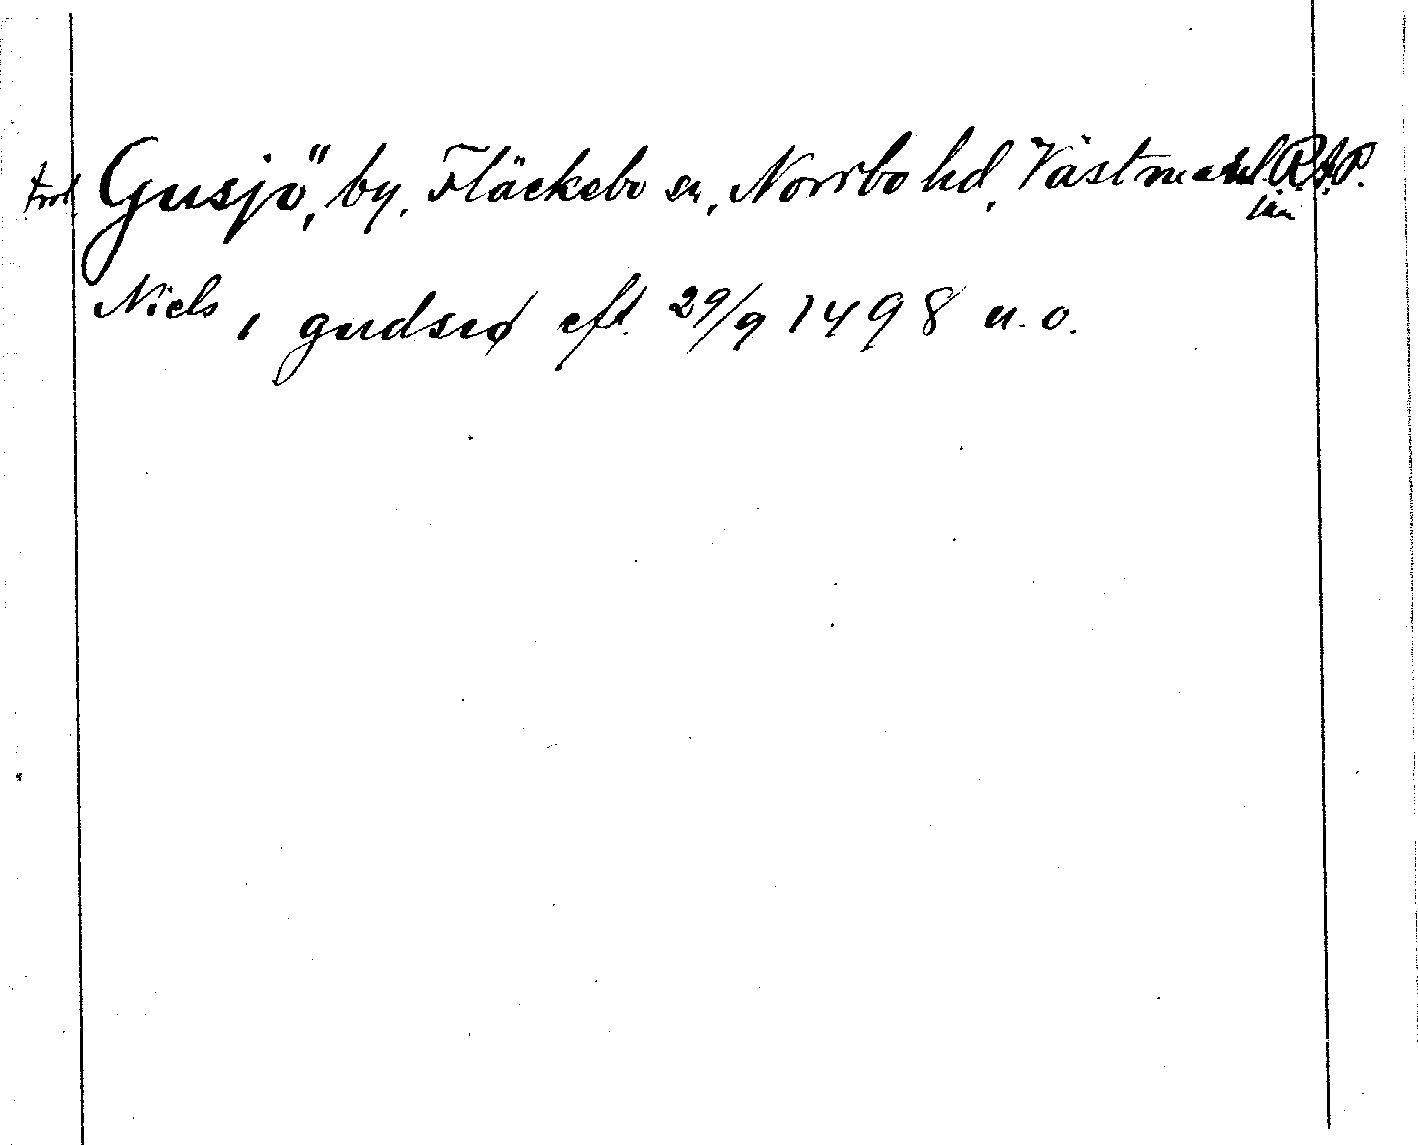 trol. Gusjö, by, Fläckebo sn, Norrbo hd, Västmanl. R.A.P.
län
Niels i gudsiø eft. 29/9 1498 u.o.